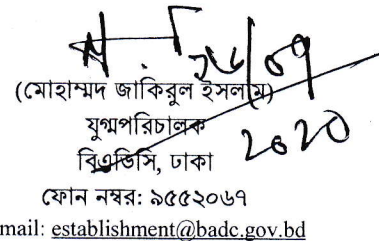 ২৮/০৭
(মোহাম্মদ জাকিরুল ইসলাম)
2020
যুগ্মপরিচালক
বিএডিসি, ঢাকা
ফোন নম্বর: ৯৫৫২০৬৭
mail: establishment@badc.gov.bd